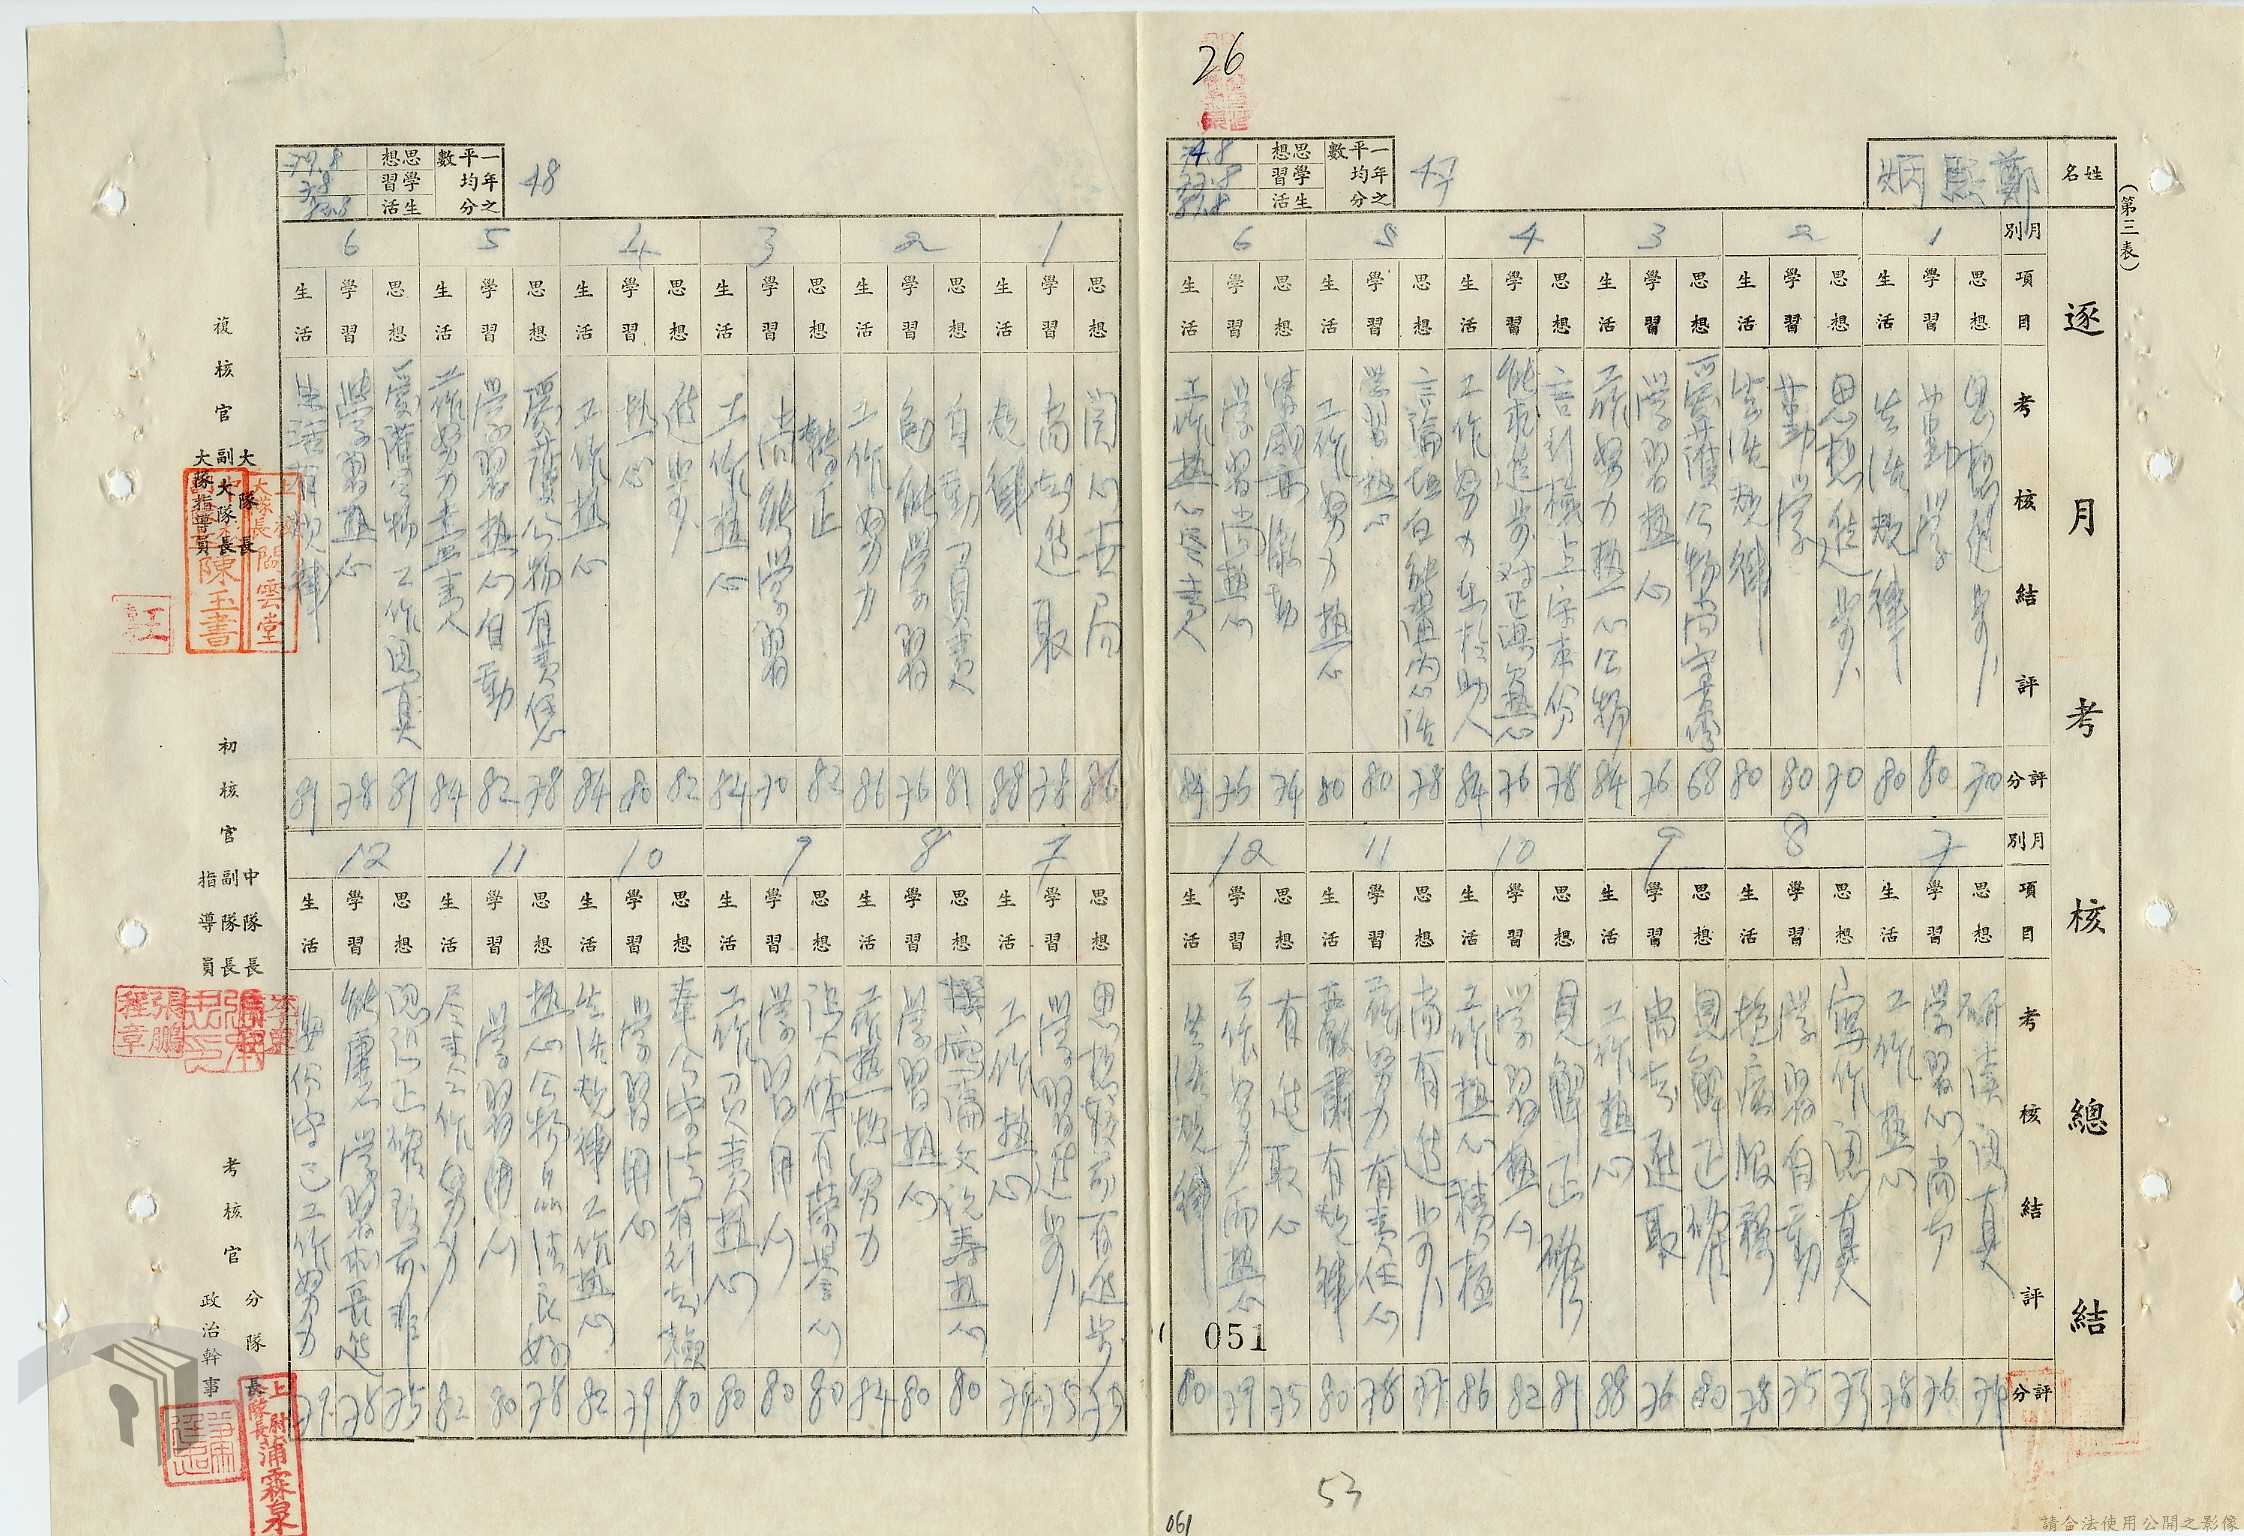 (第三表)
逐月考核總結
姓名
鄭熙炳
26
47
一年之平均分數
思想 74.8
學習 77.8
生活
月別 1 2 3 4 5 6
項目 思想 學習 生活 思想 學習 生活 思想 學習 生活 思想 學習 生活 思想 學習 生活 思想 學習 生活
考核結評
思想進步
勤學
生活規律
思想進步
勤學
生活規律
愛護公物尚守秉修
學習熱心
工作努力熱心公物
言行檢點守本份
工作努力樂於助人
言論坦白能講內心話
學習熱心
工作努力熱心
學習尚熱心
工作熱心盡責
評分 70 80 80 70 80 80 68 76 84 78 76 84 78 80 80 74 76 84
月別 7 8 9 10 11 12
項目 思想 學習 生活 思想 學習 生活 思想 學習 生活 思想 學習 生活 思想 學習 生活 思想 學習 生活
考核結評
研讀認真
學習心尚可
工作熱心
寫作認真
學習自動
抱病服務
見解正確
尚知進取
工作熱心
見解正確
學習熱心
工作熱心積極
尚有進步
工作努力有責任心
嚴肅有規律
有進取心
工作努力而熱心
生活規律
評分 74 76 78 73 75 78 80 76 88 81 82 86 77 78 80 75 79 80
051
53
061
48
一年之平均分數
思想 79.8
學習 78
生活
1 2 3 4 5 6
思想 學習 生活 思想 學習 生活 思想 學習 生活 思想 學習 生活 思想 學習 生活 思想 學習 生活
關心世局
尚知進取
規律
自動負責
勉能學習
工作努力
轉正
尚能學習
工作熱心
進步
熱心
工作熱心
愛護公物有責任
學習熱心自動
工作努力盡責
愛護公物工作認真
學習熱心
生活有規律
86 78 88 81 76 86 82 70 84 82 80 84 78 82 84 81 78 81
7 8 9 10 11 12
思想 學習 生活 思想 學習 生活 思想 學習 生活 思想 學習 生活 思想 學習 生活 思想 學習 生活
思想較前有進步
學習進步
工作熱心
撰寫論文祝壽熱心
學習熱心
工作熱忱努力
識大體有榮譽心
學習用心
工作負責熱心
奉公守法有行為表現
學習用心
生活規律工作熱心
熱心公物品德良好
學習用心
尽責工作努力
思想正確改前非
能虛心學習求長進
安份守己工作努力
77 75 79 80 80 84 80 80 80 80 79 82 78 80 82 75 78 79
複核官
大隊長
副大隊長
大隊指導員
上校大隊長閻雲堂
陳玉書
初核官
中隊長
副隊長
指導員
張鵬程章
考核官
分隊長
政治幹事
上尉分隊長蒲霖泉
請合法使用公開之影像